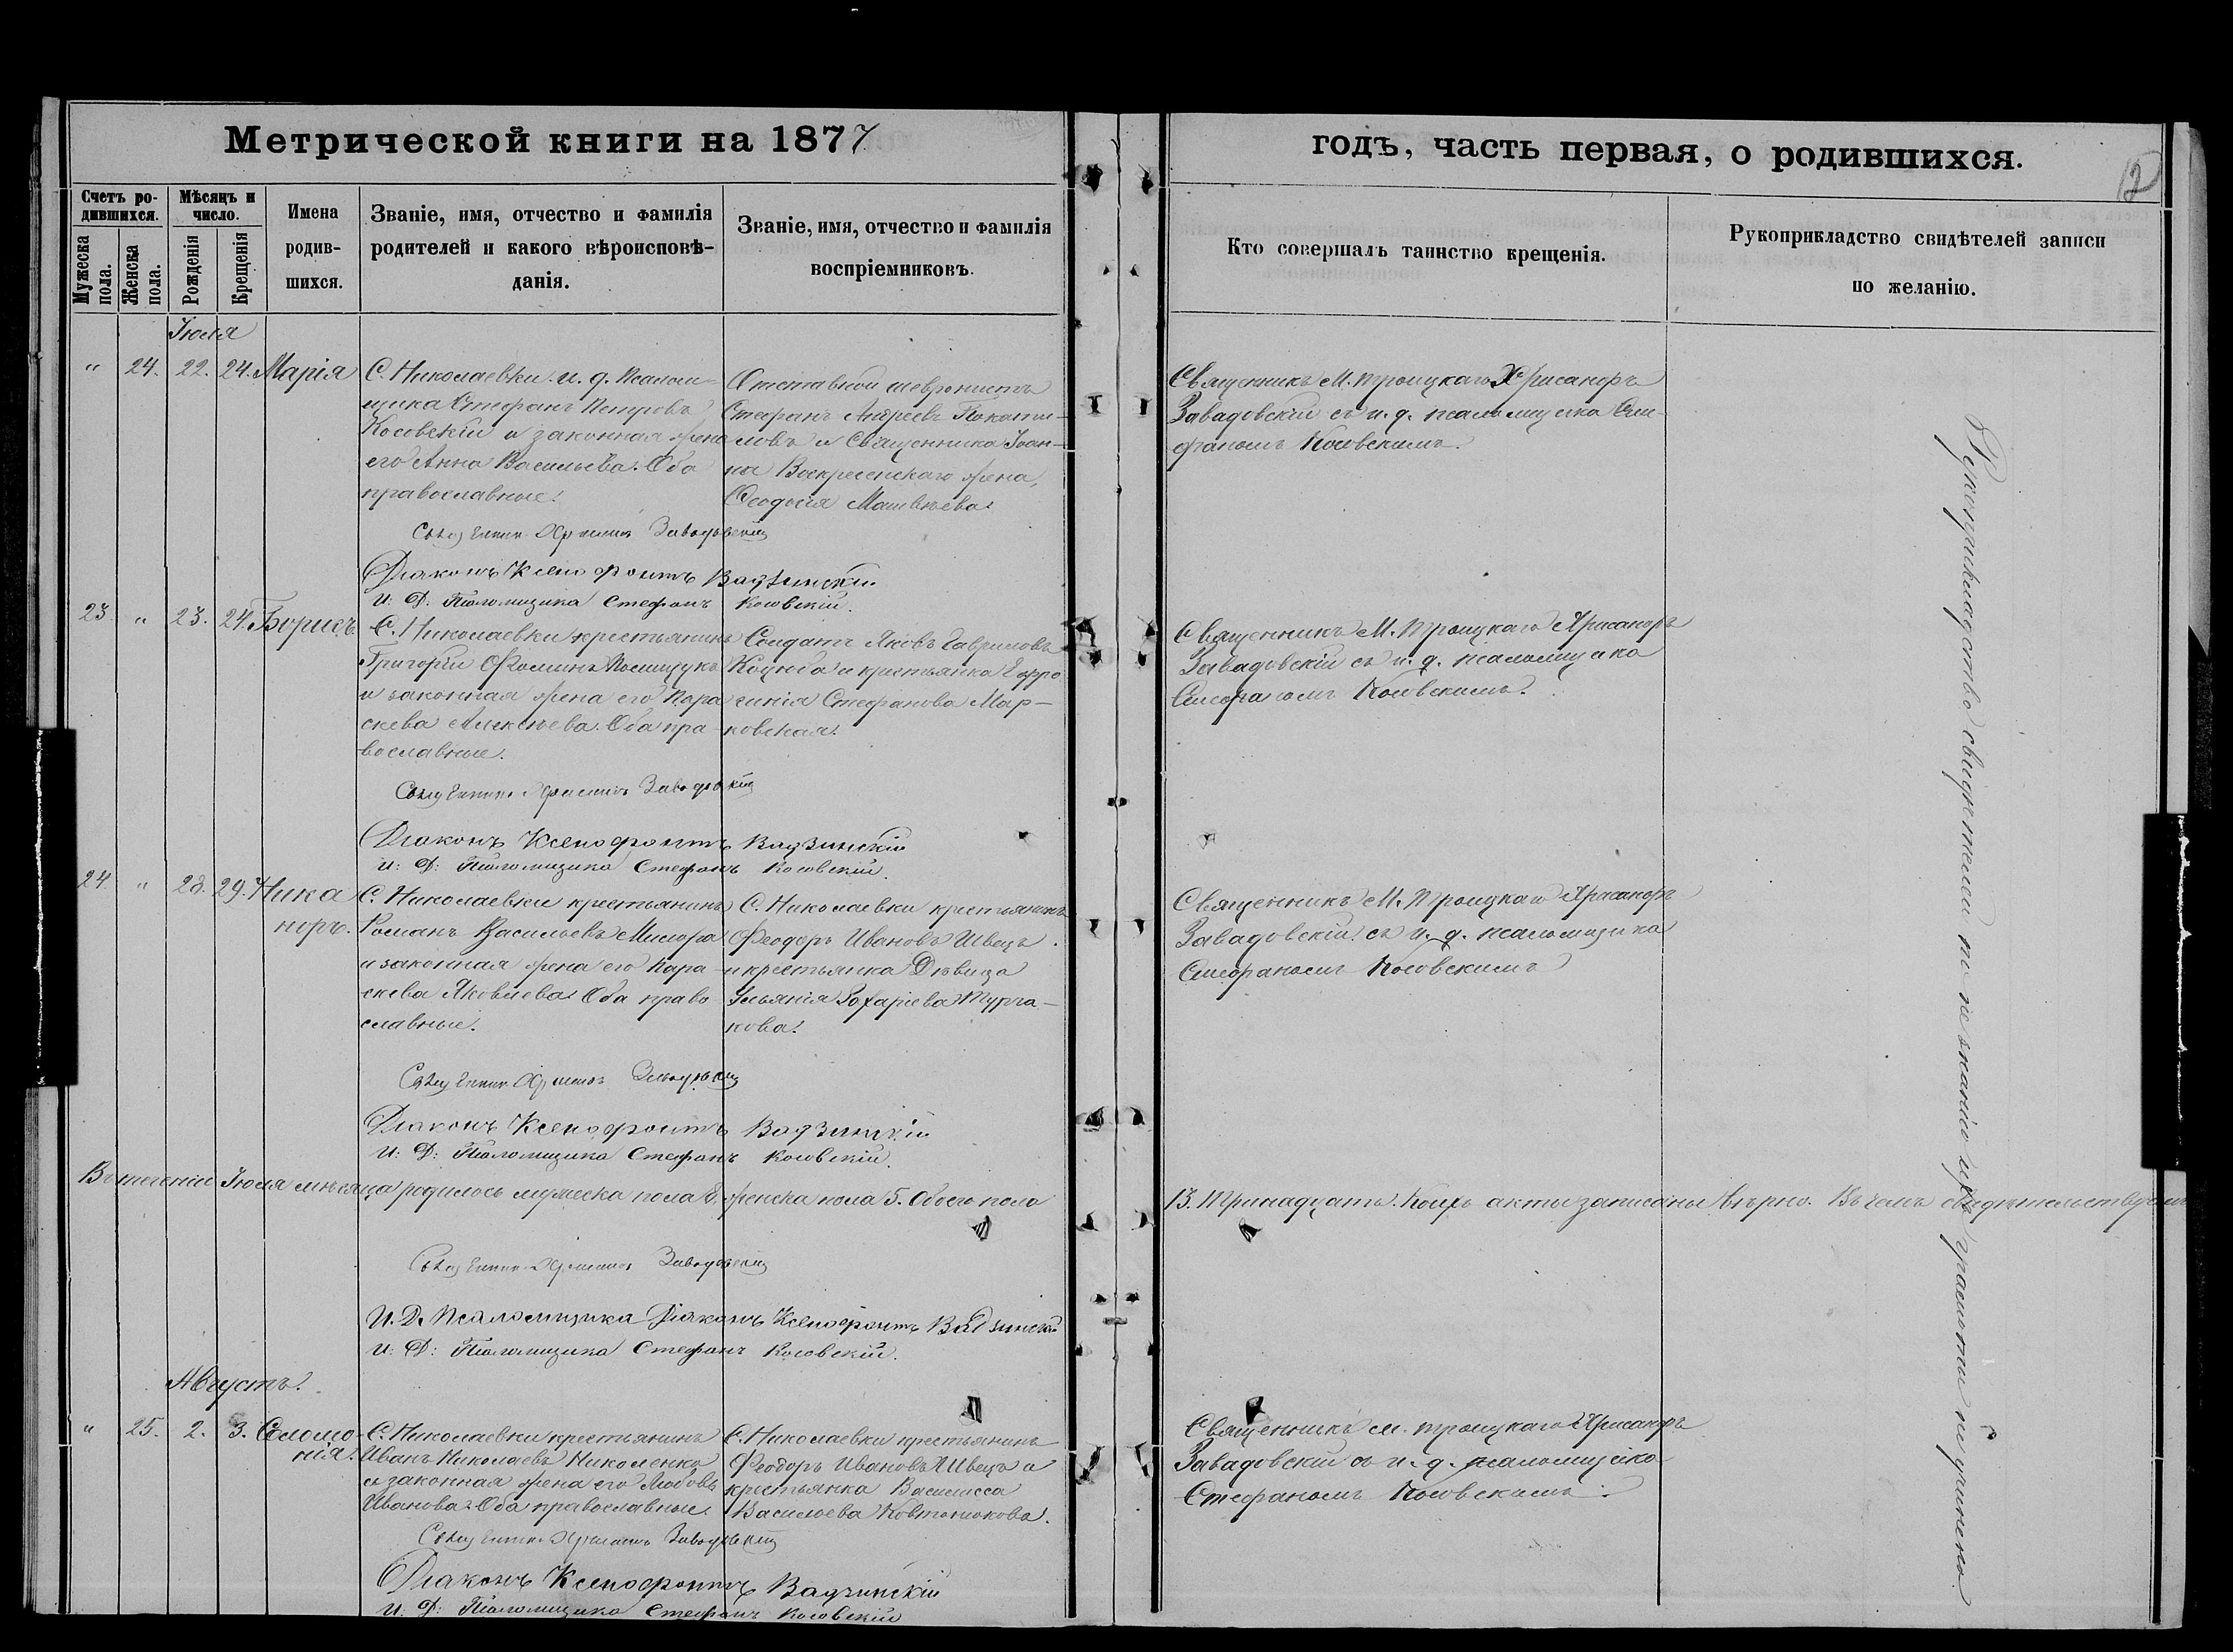 Метрической книги на 1877
годъ, часть первая, о родившихся.
12
Счетъ ро-
дившихся.
Мужеска
пола.
Женска
пола.
Мѣсяцъ и
число.
Рожденія
Крещенія
Имена
родив-
шихся.
Званіе, имя, отчество и фамилія
родителей и какого вѣроисповѣ-
данія.
Званіе, имя, отчество и фамилія
воспріемниковъ.
Кто совершалъ таинство крещенія.
Рукоприкладство свидѣтелей записи
по желанію.
Іюля
" 24. 22. 24. Марія
С. Николаевки и. д. Псалом-
щика Стефанъ Петровъ
Косовскій и законная жена
его Анна Васильева. Оба
православные.
Отставной шевронистъ
Стефанъ Андреевъ
и Священника Іоан-
на Воскресенскаго жена,
Ѳеодосія Матвѣева.
Священникъ М. Троицкаго Хрисанфъ
Завадовскій съ и. д. псаломщика Сте-
фаномъ Косовскимъ.
Священникъ Хрисанфъ Завадовскій
Діаконъ Ксенофонтъ Вадзинскій
И: Д: Псаломщика Стефанъ Косовскій.
23 " 23. 24. Борисъ.
С. Николаевки крестьянинъ
Григорій Ѳоминъ
и законная жена его Пара
скева Алексѣева. Оба пра-
вославные.
Солдатъ Яковъ Гавриловъ
Коцюба и крестьянка Евфро
синія Стефанова Мар-
ковская.
Священникъ М. Троицкаго Хрисанфъ
Завадовскій съ и. д. псаломщика
Стефаномъ Косовскимъ.
Священникъ Хрисанфъ Завадовскій
Діаконъ Ксенофонтъ Вадзинскій
И: Д: Псаломщика Стефанъ Косовскій.
24 " 28. 29. Ника
норъ.
С. Николаевки крестьянинъ
Романъ Васильевъ
и законная жена его Пара-
скева Яковлева. Оба право
славные.
С. Николаевки крестьянинъ
Ѳеодоръ Ивановъ Швецъ
и крестьянка Дѣвица
Ульянія
кова.
Священникъ М. Троицкаго Хрисанфъ
Завадовскій съ и. д. псаломщика
Стефаномъ Косовскимъ
Священникъ Хрисанфъ Завадовскій
Діаконъ Ксенофонтъ Вадзинскій
И: Д: Псаломщика Стефанъ Косовскій.
Въ теченіи Іюля мѣсяца родилось мужеска пола 8, женска пола 5. Обоего пола
13. Тринадцать. Коихъ акты записаны вѣрно. Въ чемъ свидѣтельствуемъ
Священникъ Хрисанфъ Завадовскій
И. Д. Псаломщика Діаконъ Ксенофонтъ Вадзинскій
И: Д: Псаломщика Стефанъ Косовскій.
Августъ.
" 25. 2. 3. Соломо-
нія.
С. Николаевки крестьянинъ
Иванъ Николаевъ Николенко
и законная жена его Любовь
Иванова. Оба православные.
С. Николаевки крестьянинъ
Ѳеодоръ Ивановъ Швецъ и
крестьянка Василисса
Васильева Ковтонюкова.
Священникъ м. Троицкаго Хрисанфъ
Завадовскій съ и. д. псаломщика
Стефаномъ Косовскимъ.
Священникъ Хрисанфъ Завадовскій
Діаконъ Ксенофонтъ Вадзинскій
И: Д: Псаломщика Стефанъ Косовскій
Рукоприкладство свидѣтелей по незнанію ихъ грамоты не учинено.